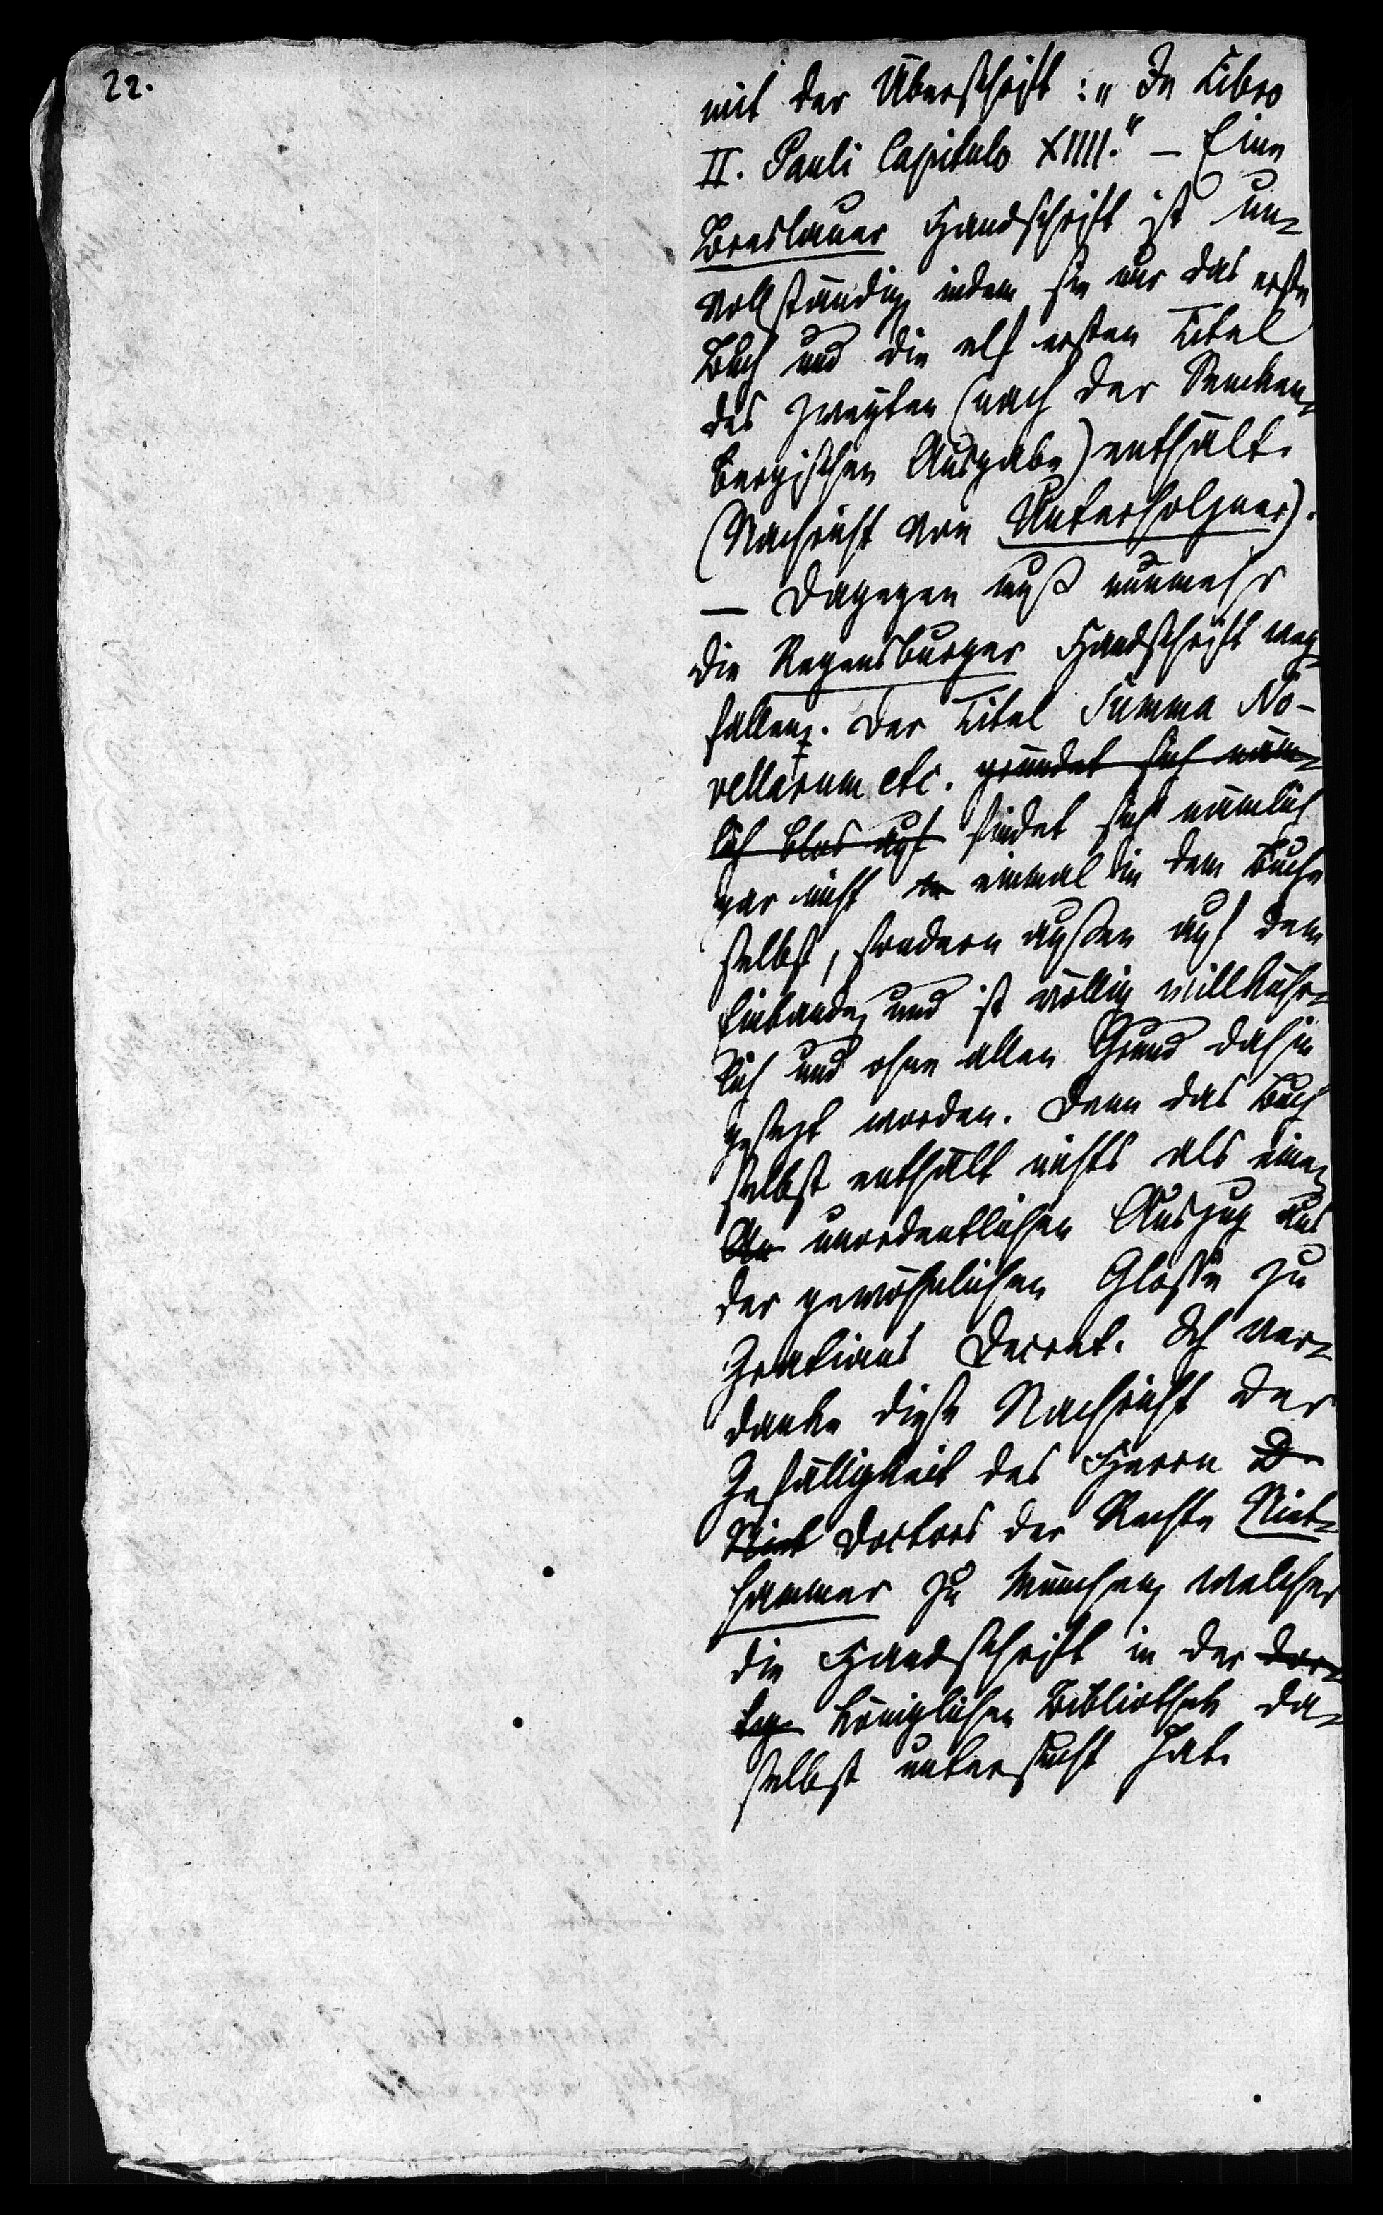 22.
mit der Überschrift: „In Libro
II. Pauli Capitulo XIIII." — Eine
Breslauer Handschrift ist un-
vollständig, indem sie nur das erste
Buch und die elf ersten Titel
des zweyten (nach der Sencken-
bergischen Ausgabe) enthält.
(Nachricht von Unterholzner).
— Dagegen muß nunmehr
die Regensburger Handschrift weg-
fallen. Der Titel Summa No-
vellarum etc. gründet sich näm-
lich blos auf findet sich nämlich
gar nicht in einmal in dem Buche
selbst, sondern außen auf dem
Einbande, und ist völlig willkühr-
lich und ohne allen Grund dahin
gesezt worden. Denn das Buch
selbst enthält nichts als einen
An unordentlichen Auszug aus
der gewöhnlichen Glosse zu
Gratians Decret. Ich ver-
danke diese Nachricht der
Gefälligkeit des Herrn D
Niet Doctors der Rechte Niet-
hammer zu München, welcher
die Handschrift in der dor-
tig Königlichen Bibliothek da-
selbst untersucht hat.